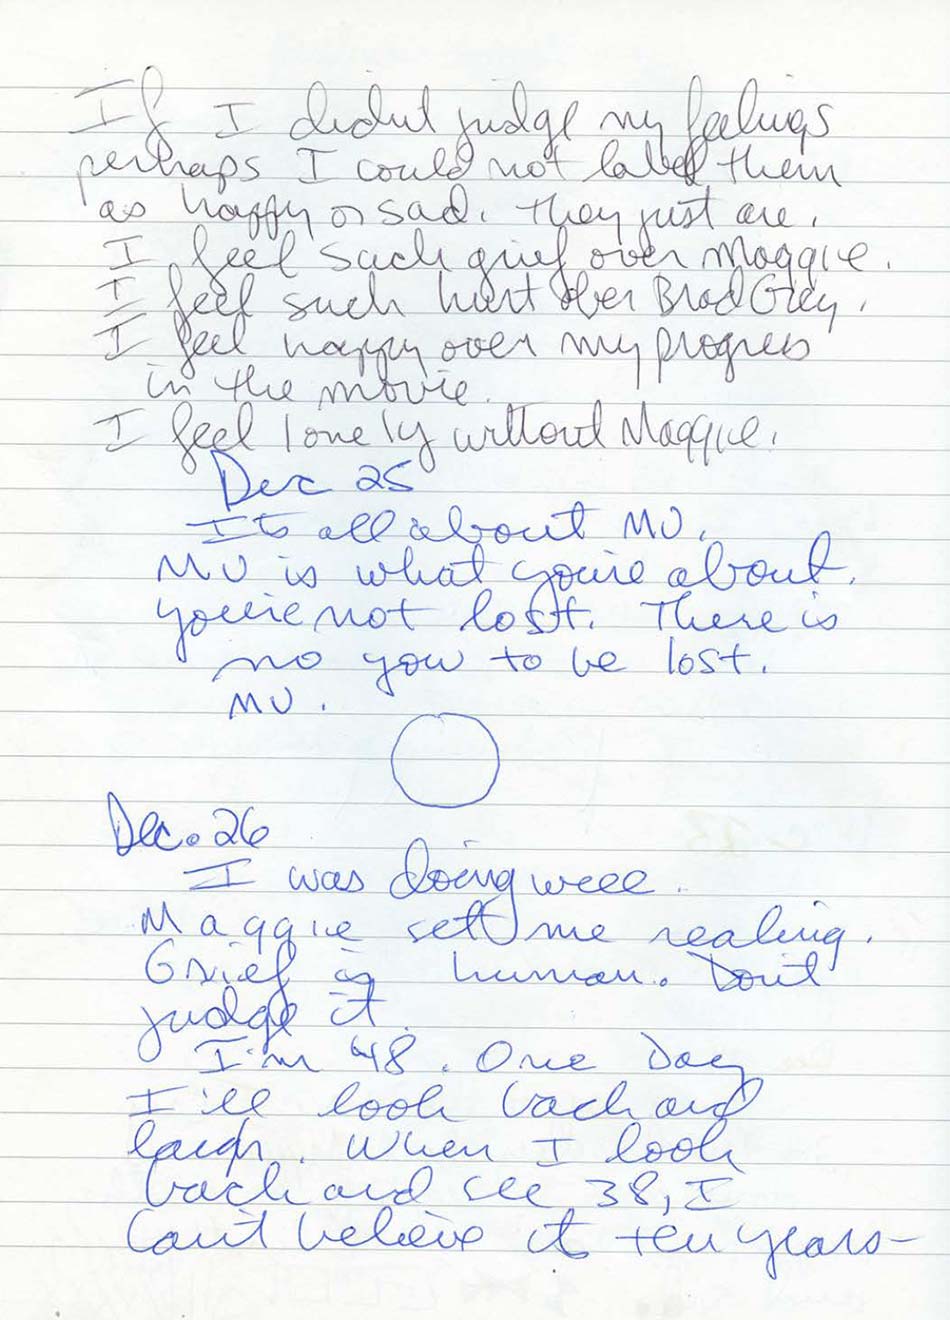 If I didnt judge my feelings
perhaps I could not label them
as happy or sad. They just are.
I feel such grief over Maggie.
I feel such hurt over Brad Grey.
I feel happy over my progress
in the movie.
I feel lonely without Maggie.
Dec 25
Its all about MU.
MU is what you're about.
you're not lost. There is
no you to be lost.
MU.
Dec. 26
I was doing well.
Maggie sett me realing.
Grief is human. Don't
judge it.
I'm 48. One Day
I'll look back and
laugh. When I look
back and see 38, I
Can't believe it ten years-